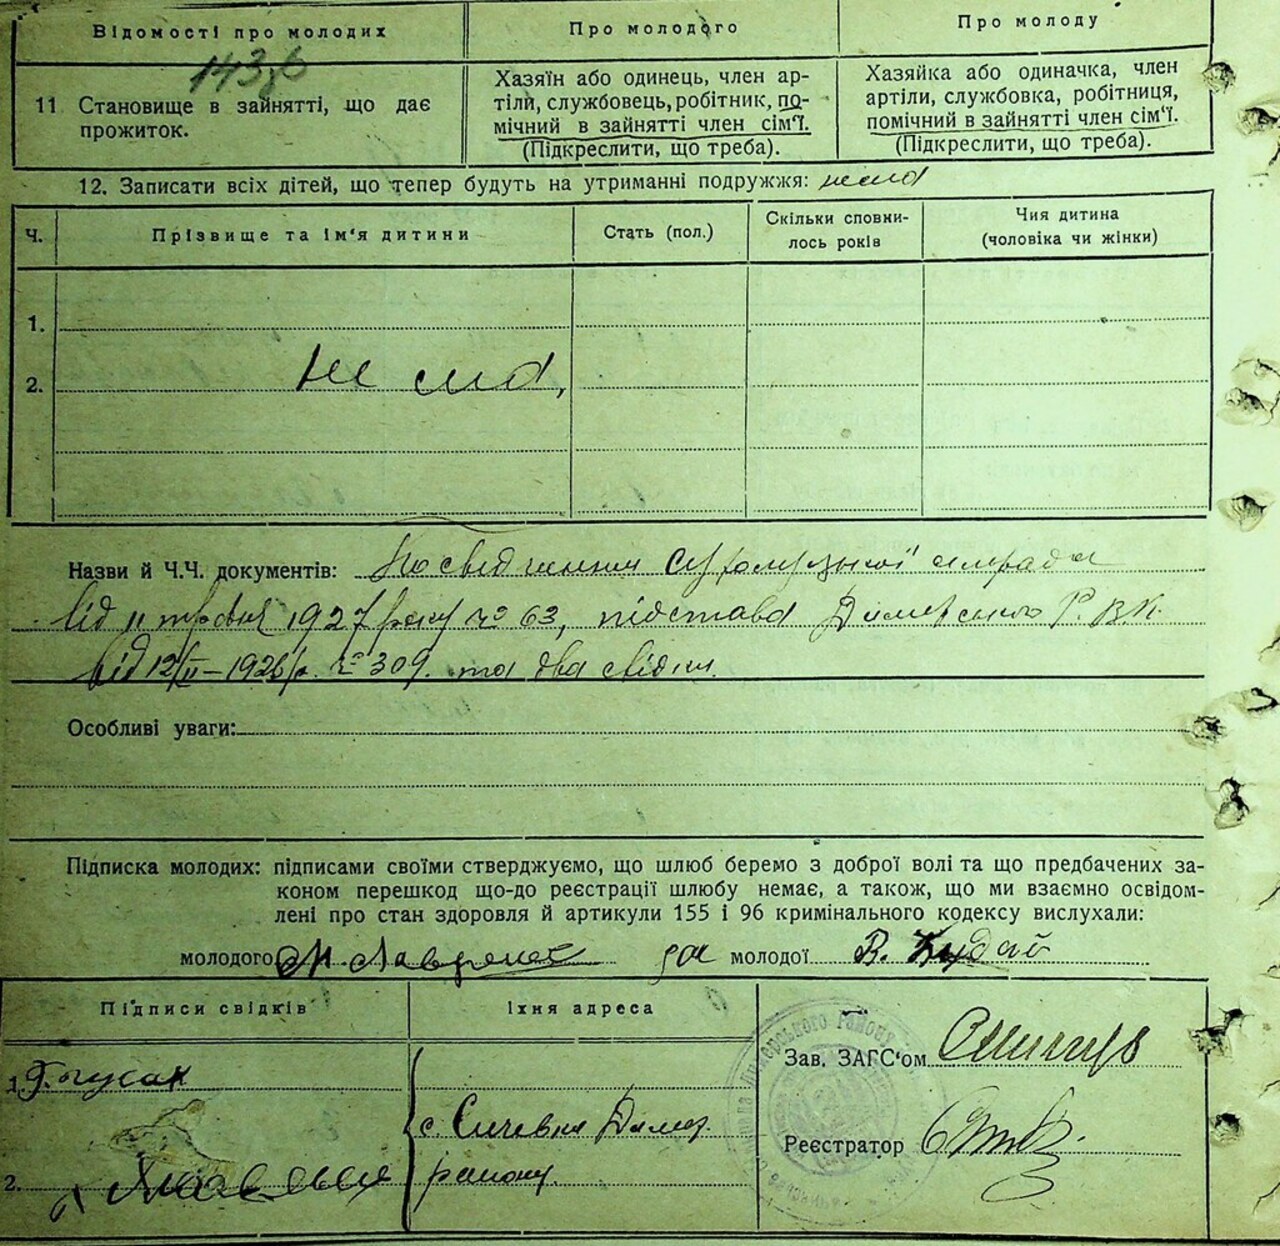 Відомості про молодих
Про молодого
Про молоду
1436
11 Становище в зайнятті, що дає
прожиток.
Хазяїн або одинець, член ар-
тіли, службовець, робітник, по-
мічний в зайнятті член сім'ї.
(Підкреслити, що треба).
Хазяйка або одиначка, член
артіли, службовка, робітниця,
помічний в зайнятті член сім'ї.
(Підкреслити, що треба).
12. Записати всіх дітей, що тепер будуть на утриманні подружжя: нема
Ч.
Прізвище та ім'я дитини
Стать (пол.)
Скільки сповни-
лось років
Чия дитина
(чоловіка чи жінки)
1.
2.
Не ма,
Назви й Ч.Ч. документів: Посвідчення
від 11 травня 1927 року № 63, підстава Димерського Р.В.К.
від 12/II–1926 р. № 309. та два свідки.
Особливі уваги:
Підписка молодих: підписами своїми стверджуємо, що шлюб беремо з доброї волі та що предбачених за-
коном перешкод що-до реєстрації шлюбу немає, а також, що ми взаємно освідом-
лені про стан здоровля й артикули 155 і 96 кримінального кодексу вислухали:
молодого молодої В.
Підписи свідків
їхня адреса
1.
2.
с. Сичевка Димер.
району.
Зав. ЗАГС'ом
Реєстратор
Димерського Району